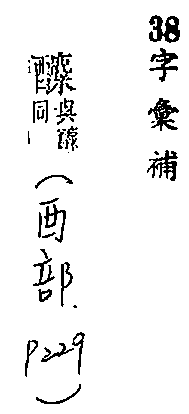 38字彙補
與
同
(酉部.
P229)